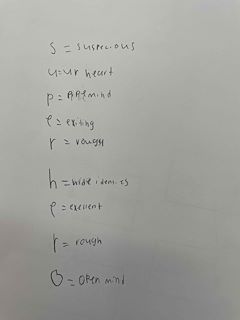 S = suspecious
u = ur heart
p = mind
e = exiting
r = rough
h = hide
e = exellent
r = rough
O = open mind